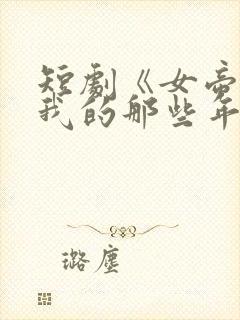 短劇《女帝
我的那些年
璐塵